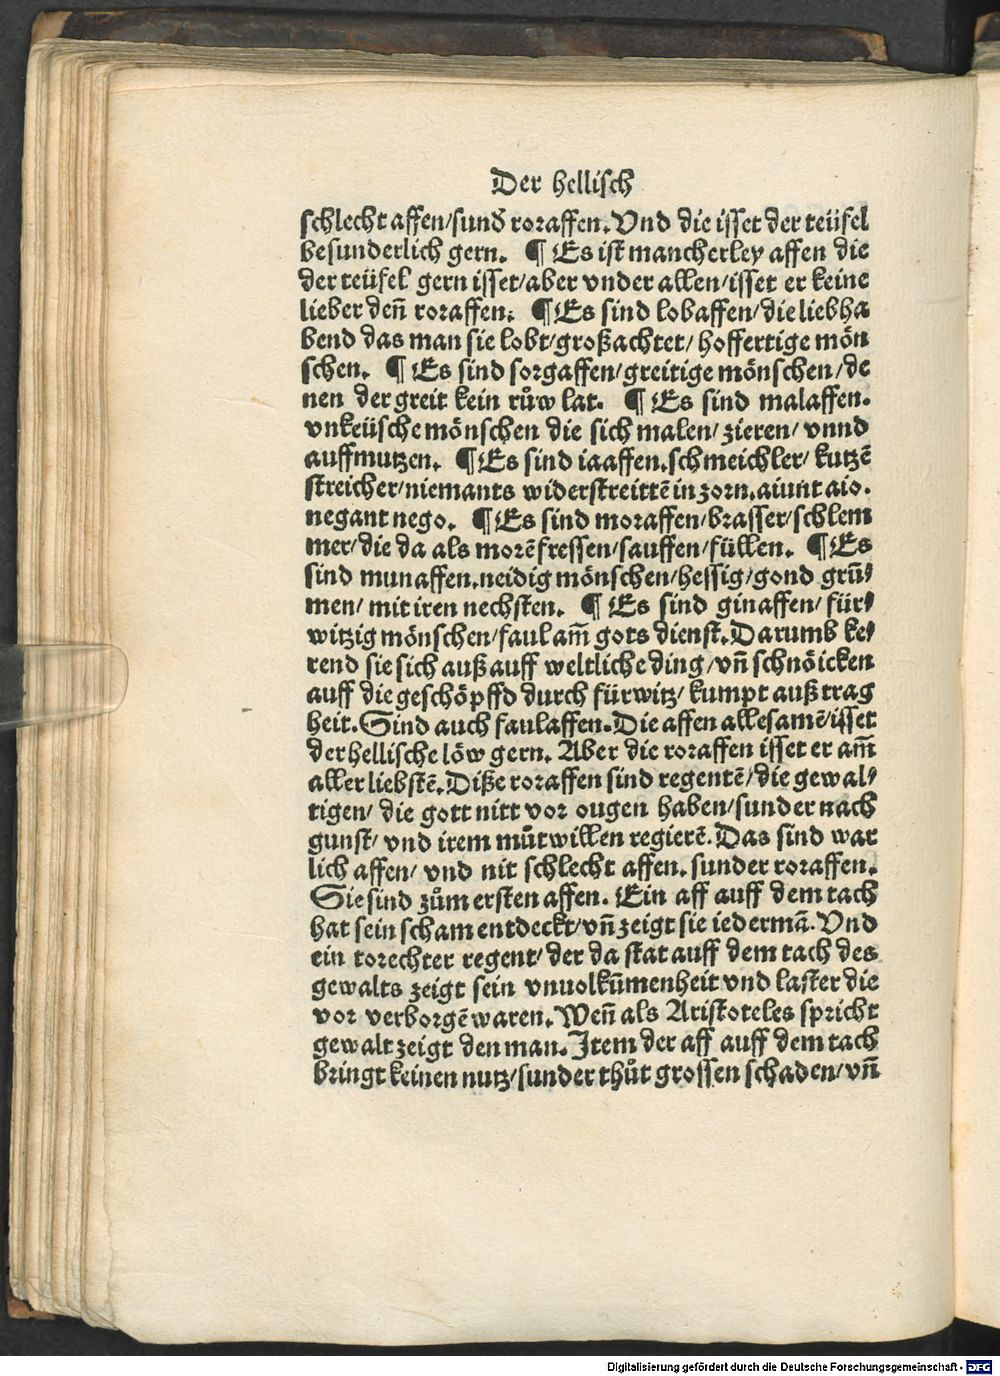 Der hellisch
schlecht affen/sunđ roraffen. Vnd die isset der teüfel
besunderlich gern. ¶ Es ist mancherley affen die
der teüfel gern isset/aber vnder allen/isset er keine
lieber den̄ roraffen. ¶ Es sind lobaffen/die liebha
bend das man sie lobt/großachtet/ hoffertige mön
schen. ¶ Es sind sorgaffen/greitige mönschen/de
nen der greit kein růw lat. ¶ Es sind malaffen.
vnkeüsche mönschen die sich malen/ zieren/ vnnd
auffmutzen. ¶ Es sind iaaffen.schmeichler/ kutzē
streicher/niemants widerstreittē in zorn.aiunt aio.
negant nego. ¶ Es sind moraffen/brasser/schlem
mer/die da als morē fressen/sauffen/füllen. ¶ Es
sind munaffen.neidig mönschen/hessig/gond grū⸗
men/ mit iren nechsten. ¶ Es sind ginaffen/ für⸗
witzig mönschen/faul am̄ gots dienst. Darumb ke⸗
rend sie sich auß auff weltliche ding/vn̄ schnöicken
auff die geschöpffd durch fürwitz/ kumpt auß trag
heit. Sind auch faulaffen. Die affen allesamē/isset
der hellische löw gern. Aber die roraffen isset er am̄
aller liebstē. Diße roraffen sind regentē/die gewal⸗
tigen/ die gott nitt vor ougen haben/sunder nach
gunst/ vnd irem můtwillen regierē. Das sind war
lich affen/ vnd nit schlecht affen. sunder roraffen.
Sie sind zům ersten affen. Ein aff auff dem tach
hat sein scham entdeckt/vn̄ zeigt sie iedermā. Vnd
ein torechter regent/der da stat auff dem tach des
gewalts zeigt sein vnuolkūmenheit vnd laster die
vor verborgē waren. Wen̄ als Aristoteles spricht
gewalt zeigt den man. Item der aff auff dem tach
bringt keinen nutz/sunder thůt grossen schaden/vn̄
Digitalisierung gefördert durch die Deutsche Forschungsgemeinschaft - DFG